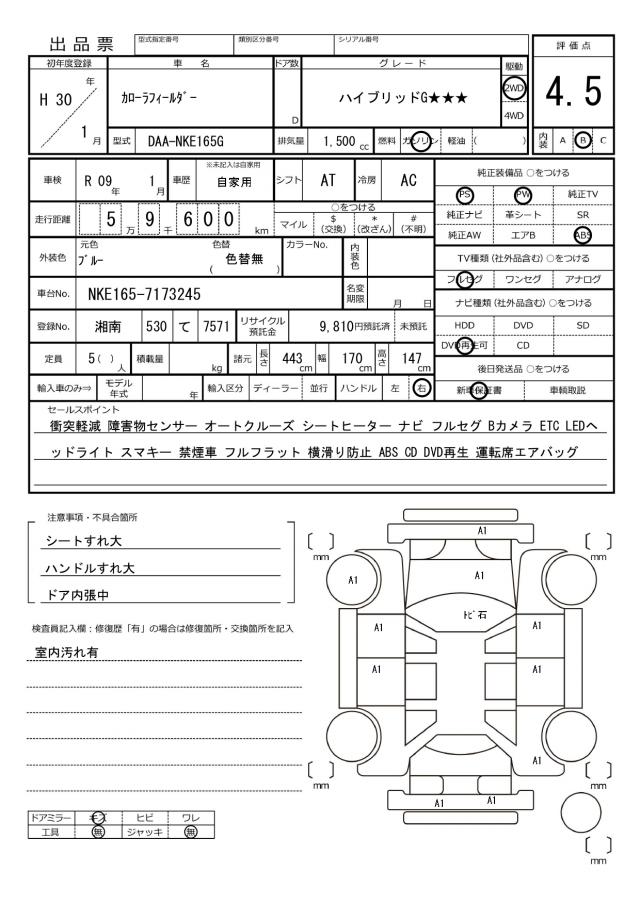 出品票 型式指定番号 類別区分番号 シリアル番号
評価点
4.5
内装 A B C
初年度登録 車名 ドア数 グレード 駆動
H 30 年 1 月
ｶﾛｰﾗﾌｨｰﾙﾀﾞｰ D ハイブリッドG★★★ 2WD 4WD
型式 DAA-NKE165G 排気量 1,500 cc 燃料 ガソリン 軽油 ( )
車検 R 09 年 1 月 車歴 ※未記入は自家用 自家用 シフト AT 冷房 AC
走行距離 5 万 9 千 6 0 0 km
○をつける
マイル $(交換) *(改ざん) #(不明)
外装色 元色 ﾌﾞﾙｰ 色替 ( 色替無 ) カラーNo. 内装色
車台No. NKE165-7173245 名変期限 月 日
登録No. 湘南 530 て 7571 リサイクル預託金 9,810円預託済 未預託
定員 5( ) 人 積載量 kg 諸元 長さ 443 cm 幅 170 cm 高さ 147 cm
輸入車のみ⇒ モデル年式 年 輸入区分 ディーラー 並行 ハンドル 左 右
純正装備品 ○をつける
PS PW 純正TV
純正ナビ 革シート SR
純正AW エアB ABS
TV種類(社外品含む) ○をつける
フルセグ ワンセグ アナログ
ナビ種類(社外品含む) ○をつける
HDD DVD SD
DVD再生可 CD
後日発送品 ○をつける
新車保証書 車輌取説
セールスポイント
衝突軽減 障害物センサー オートクルーズ シートヒーター ナビ フルセグ Bカメラ ETC LEDヘ
ッドライト スマキー 禁煙車 フルフラット 横滑り防止 ABS CD DVD再生 運転席エアバッグ
注意事項・不具合箇所
シートすれ大
ハンドルすれ大
ドア内張中
検査員記入欄：修復歴「有」の場合は修復箇所・交換箇所を記入
室内汚れ有
ドアミラー キズ ヒビ ワレ
工具 無 ジャッキ 無
A1
mm mm
A1 A1
ﾄﾋﾞ石
A1 A1
A1 A1
A1
mm mm
A1 A1
mm